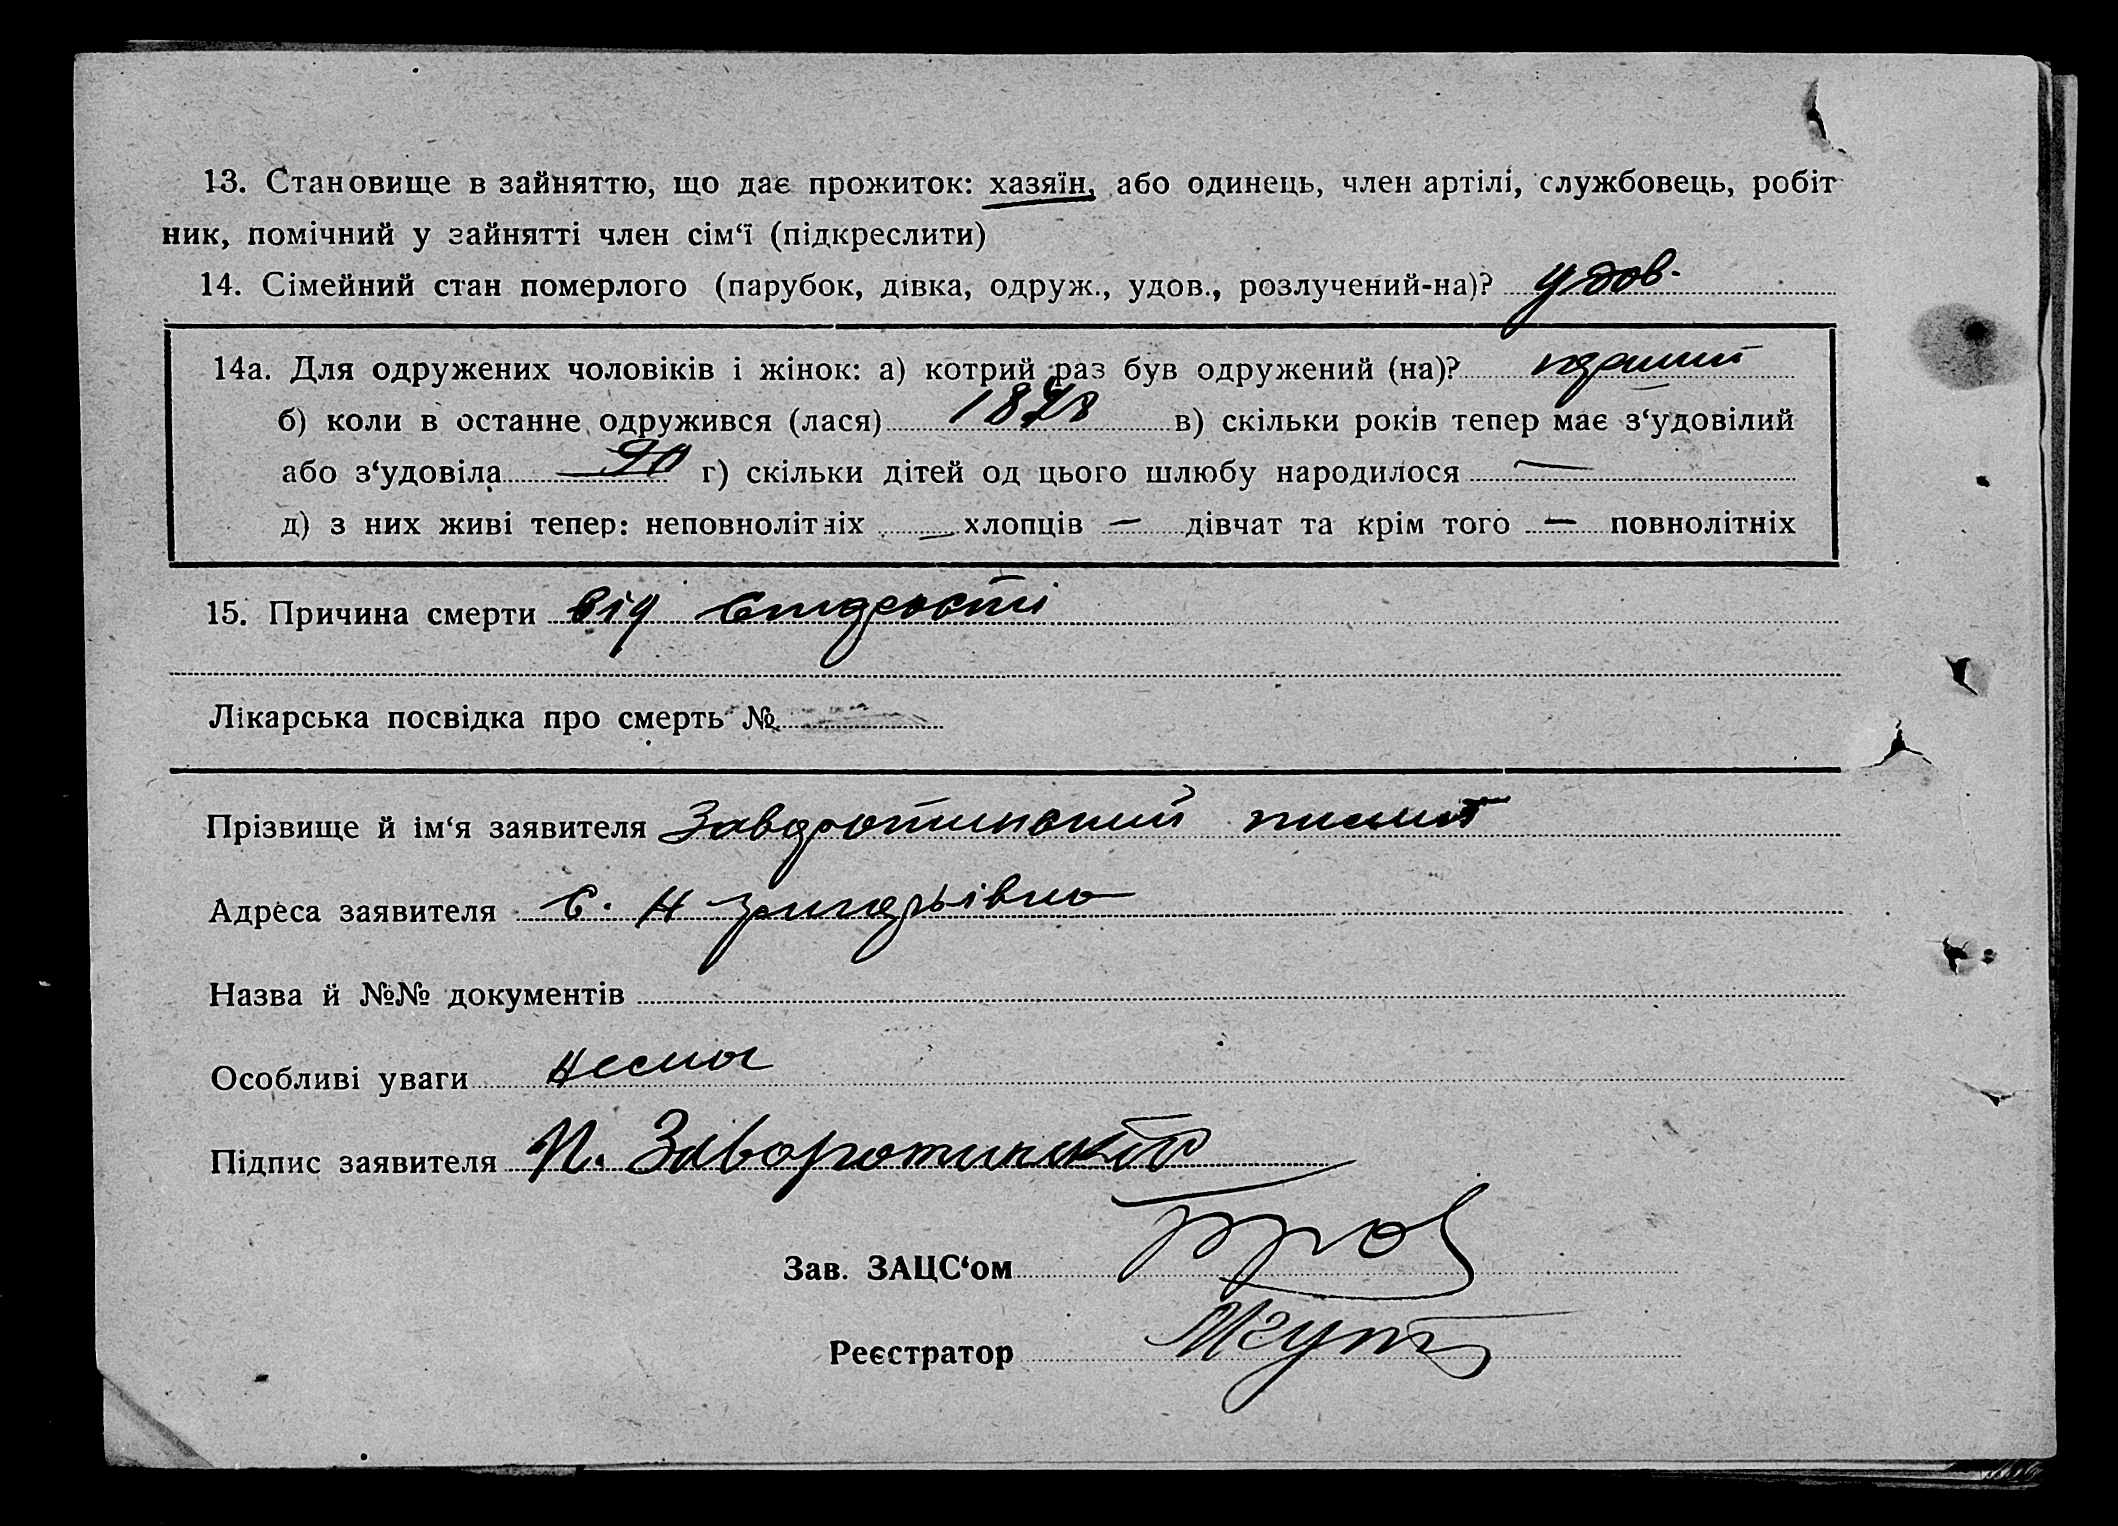 13. Становище в зайняттю, що дає прожиток: хазяїн, або одинець, член артілі, службовець, робіт
ник, помічний у зайнятті член сім‘ї (підкреслити)
14. Сімейний стан померлого (парубок, дівка, одруж., удов., розлучений-на)? удов.
14а. Для одружених чоловіків і жінок: а) котрий раз був одружений (на)?
б) коли в останне одружився (лася) 1878 в) скільки років тепер має з‘удовілий
або з‘удовіла 90 г) скільки дітей од цього шлюбу народилося —
д) з них живі тепер: неповнолітніх — хлопців — дівчат та крім того — повнолітніх
15. Причина смерти від старости
Лікарська посвідка про смерть №
Прізвище й ім‘я заявителя Заворотинский
Адреса заявителя с. Н
Назва й №№ документів
Особливі уваги нема
Підпис заявителя П. Заворотинский
Зав. ЗАЦС‘ом
Реєстратор